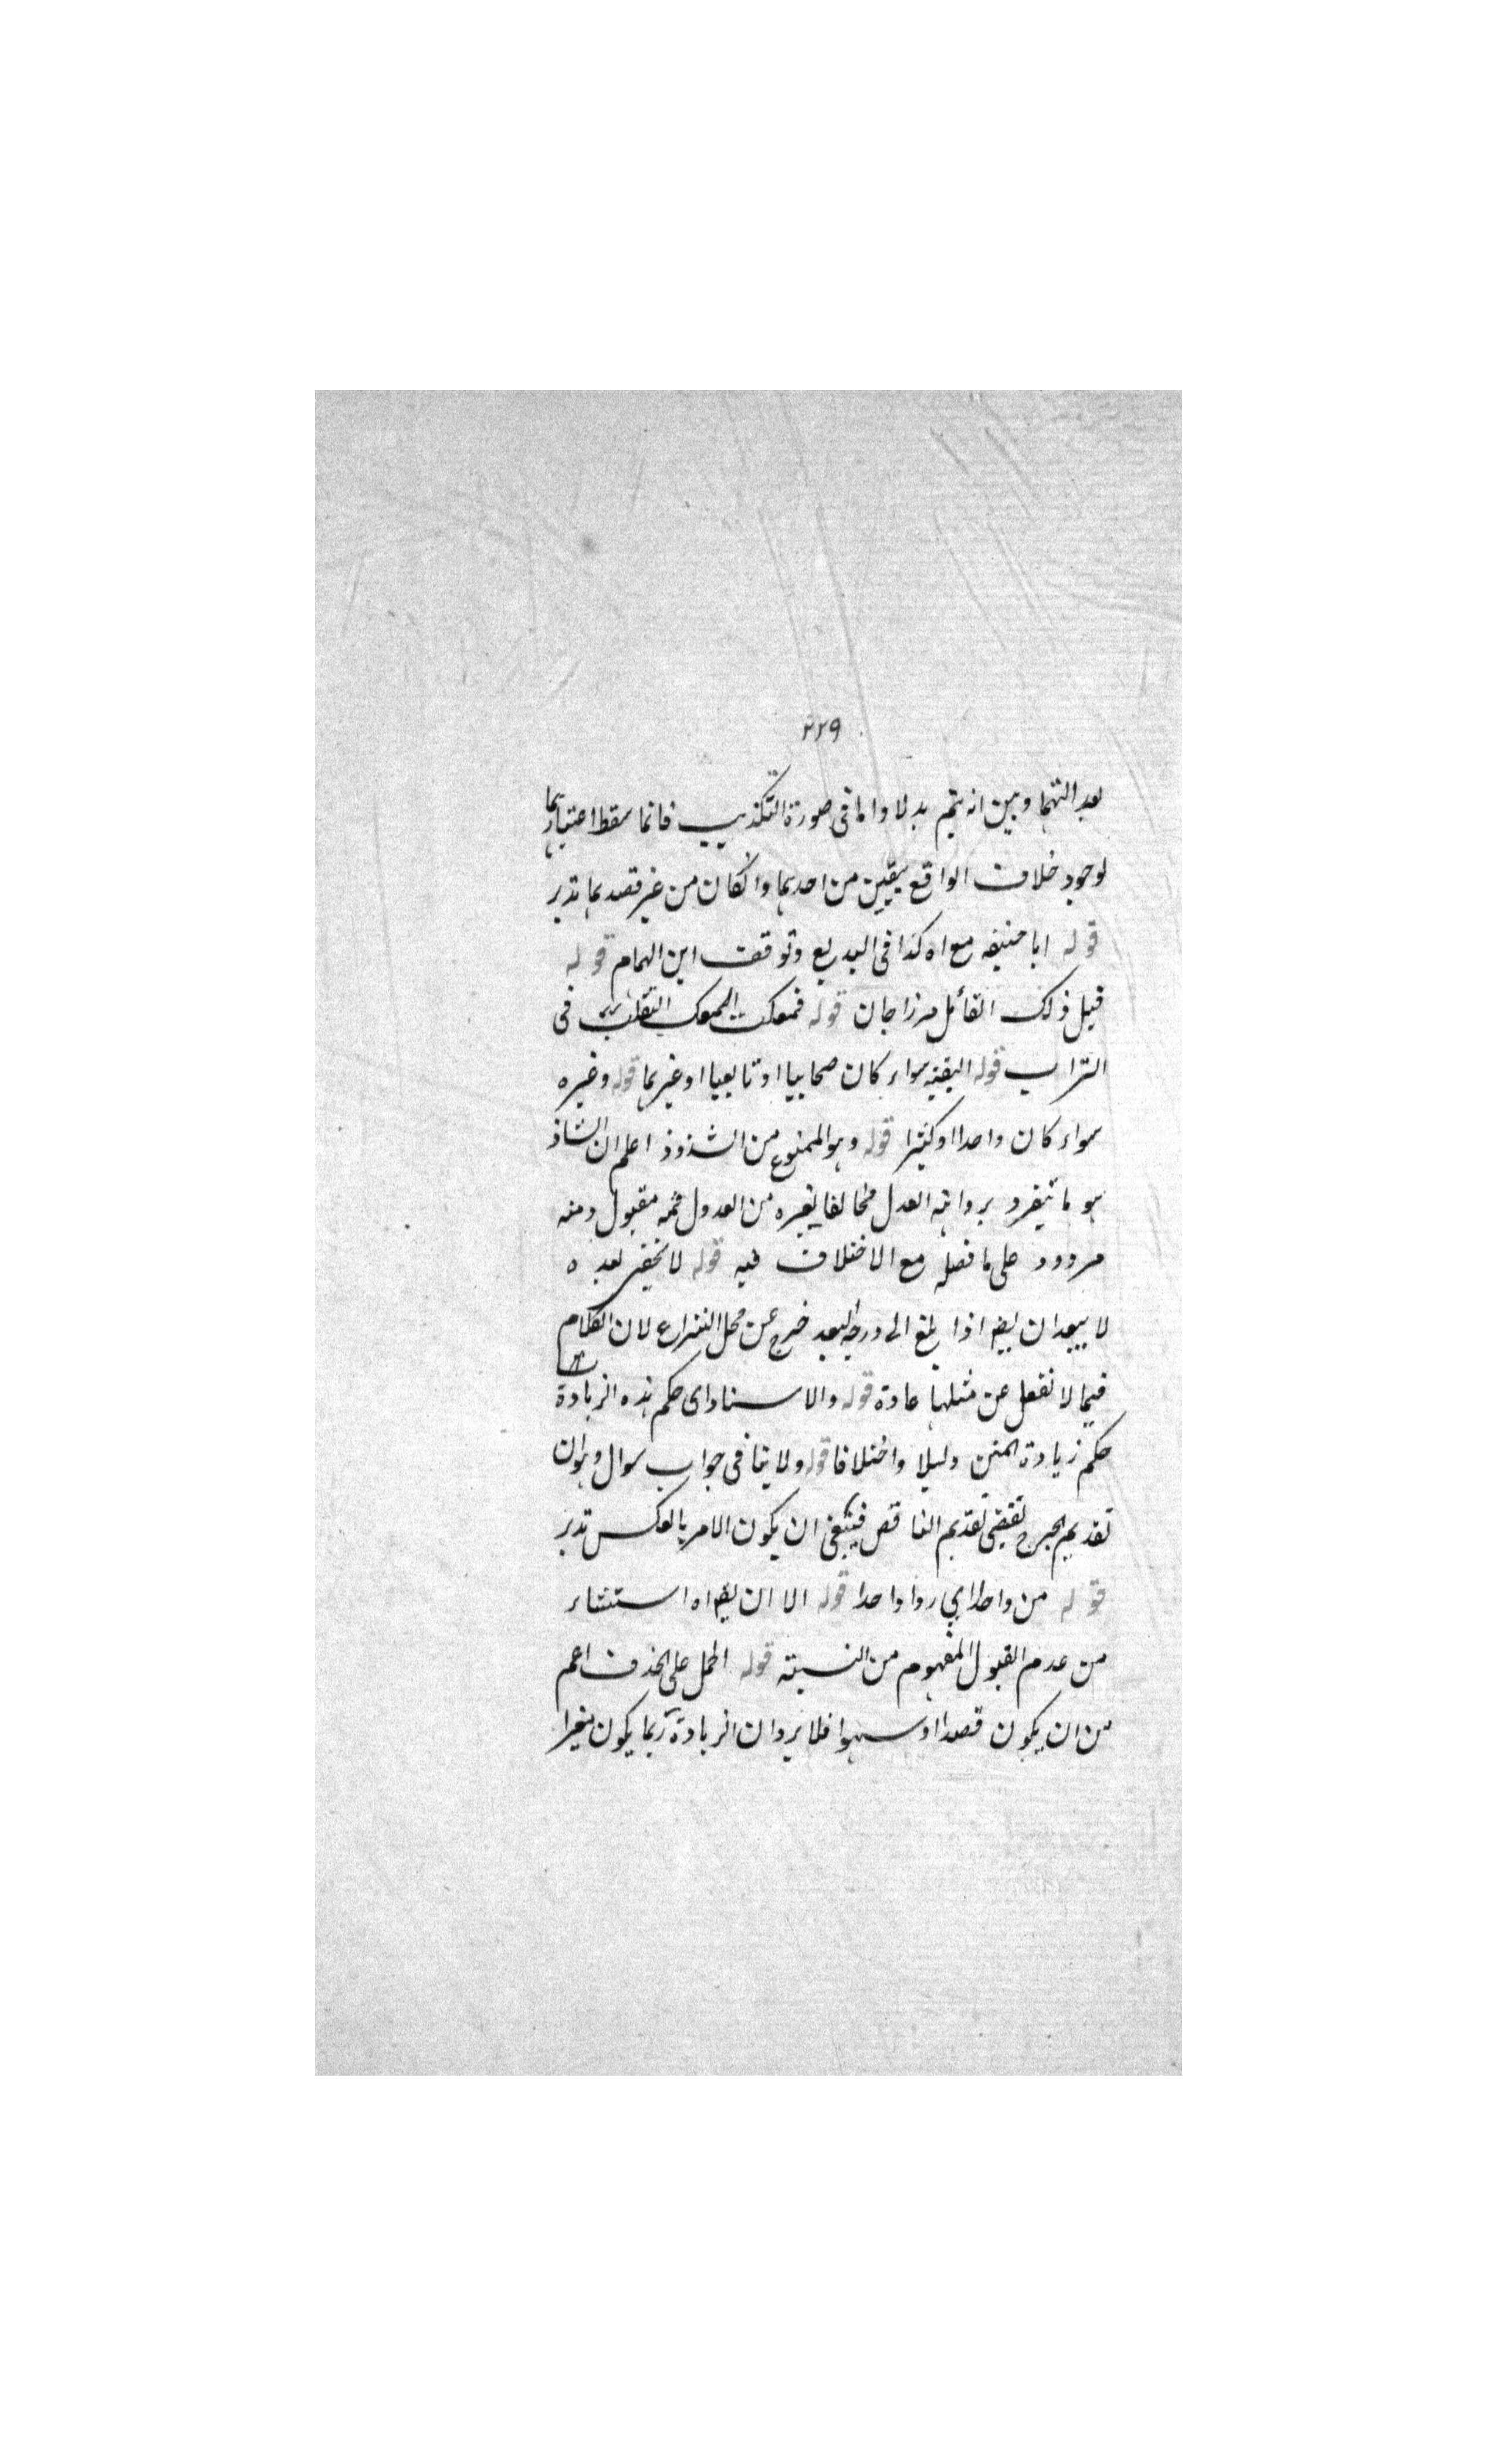 ٢٢٩
بعد التهما وبين انه يتم بدلا واما فى صورة التكذيب فانما سقط اعتبارهما
لوجود خلاف الواقع بيقين من احدهما وانكان من غير قصدهما تدبر
قوله ابا حنيفه مع اه كذا فى البديع وتوقف ابن الهمام قوله
قيل ذلك القائل مرزا جان قوله فتمعكت التمعك التقلب فى
التراب قوله البقية سواء كان صحابيا او تابعيا او غيرهما قوله وغيره
سواء كان واحدا او كثيرا قوله وهو الممنوع من الشذوذ اعلم ان الشاذ
هو ما يتفرد بروايته العدل مخالفا لغيره من العدول فمنه مقبول ومنه
مردود على ما فصل مع الاختلاف فيه قوله لا يخفى بعده
لا يبعد ان يقال اذا بلغ الى درجة البعد خرج عن محل النزاع لان الكلام
فيما لا نغفل عن مثلها عادة قوله والاسناد اى حكم هذه الزيادة
حكم زيادة المتن دليلا واختلافا قوله ولا ينافى جواب سوال وهو ان
تقديم الجرح تقتضى تقديم الناقص فينبغى ان يكون الامر بالعكس تدبر
قوله من واحد اي روا واحدا قوله الا ان يقال اه استثناء
من عدم القبول المفهوم من النسبة قوله الحمل على الحذف اعم
من ان يكون قصدا او سهوا فلا يرد ان الزيادة ربما يكون مغيرا